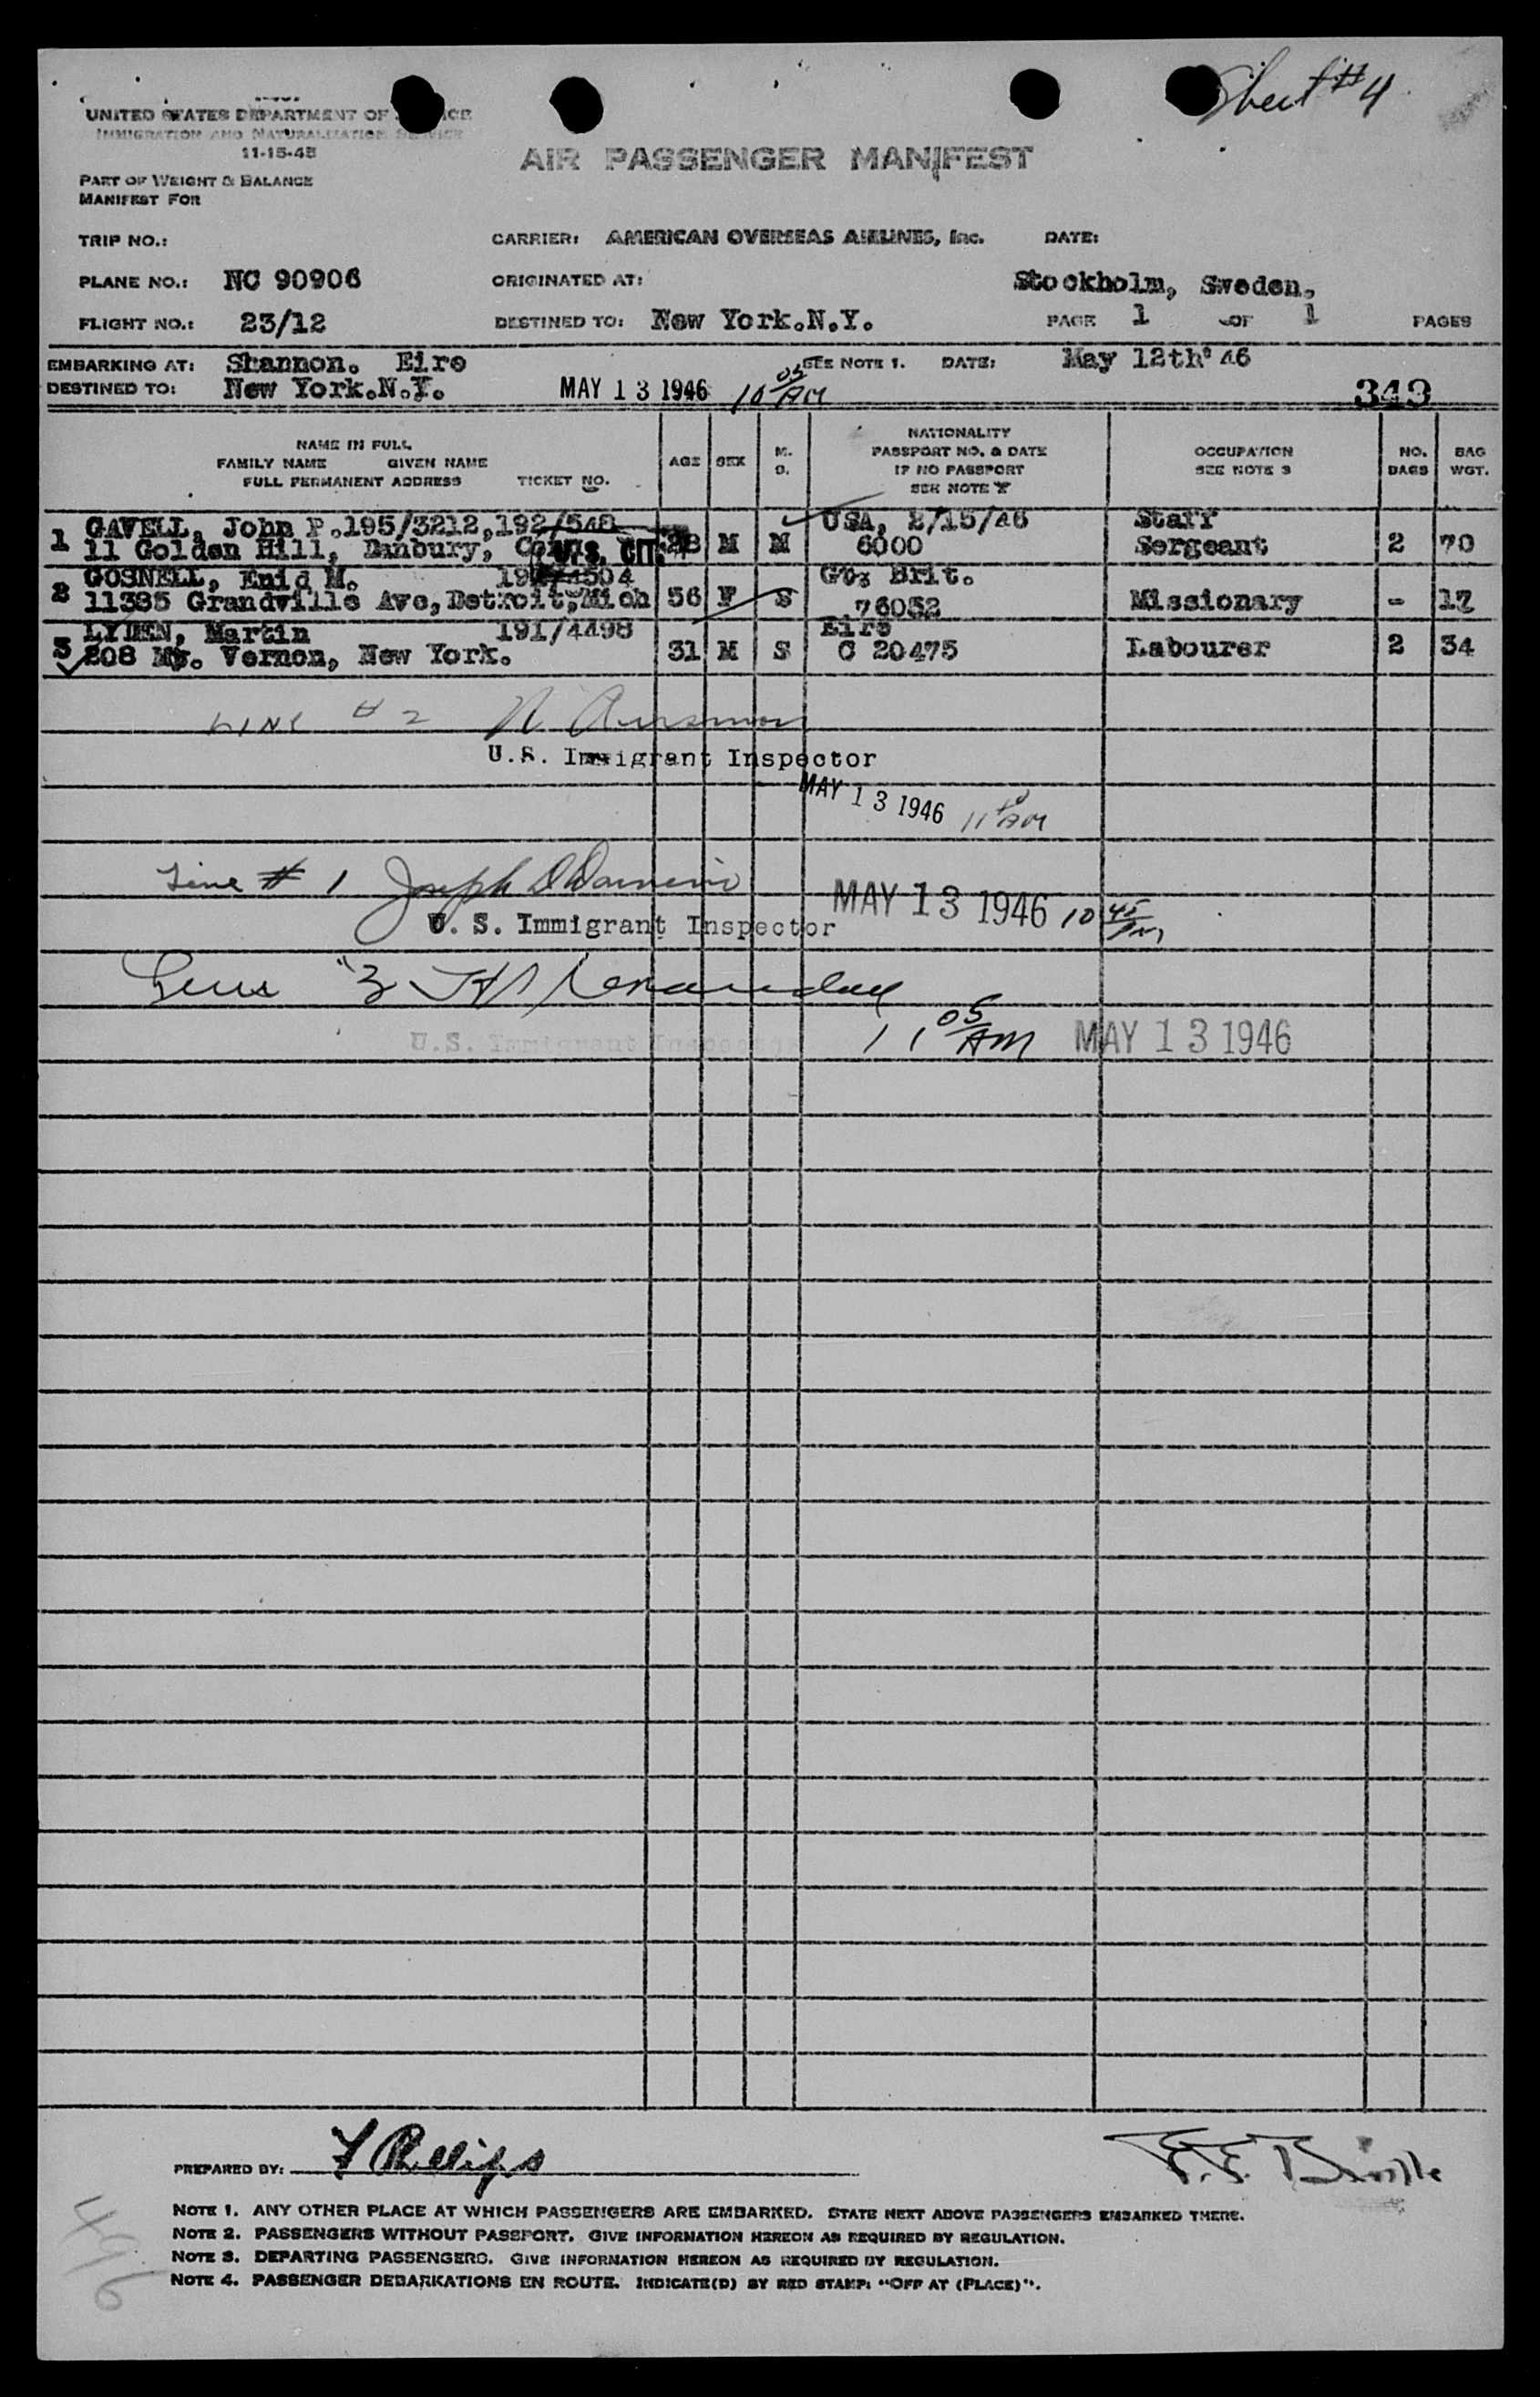 Sheet #4
UNITED STATES DEPARTMENT OF
IMMIGRATION AND NATURALIZATION SERVICE
11-15-45
AIR PASSENGER MANIFEST
PART OF WEIGHT & BALANCE
MANIFEST FOR
TRIP NO.: CARRIER: AMERICAN OVERSEAS AIRLINES, Inc. DATE:
PLANE NO.: NC 90906 ORIGINATED AT: Stockholm, Sweden,
FLIGHT NO.: 23/12 DESTINED TO: New York.N.Y. PAGE 1 OF 1 PAGES
EMBARKING AT: Shannon. Eire SEE NOTE 1. DATE: May 12th' 46
DESTINED TO: New York.N.Y. MAY 13 1946 10 05 AM 343
NAME IN FULL
FAMILY NAME GIVEN NAME
FULL PERMANENT ADDRESS TICKET NO.
AGE SEX M. S.
NATIONALITY
PASSPORT NO. & DATE
IF NO PASSPORT
SEE NOTE
OCCUPATION
SEE NOTE 3
NO. BAGS
BAG WGT.
1 GAVELL, John P. 195/3212, 192/548 USA, 2/15/46 Staff
11 Golden Hill, Danbury, Conn U.S. CIT. 28 M M 6000 Sergeant 2 70
2 GOSNELL, Enid M. 4504 Gt. Brit.
11385 Grandville Ave, Detroit, Mich 56 F S 76052 Missionary - 17
3 LYDEN, Martin 191/4498 Eire
208 Mt. Vernon, New York. 31 M S C 20475 Labourer 2 34
LINE # 2
U.S. Immigrant Inspector
MAY 13 1946 11 10 AM
Line # 1 Joseph
U. S. Immigrant Inspector MAY 13 1946 10 45 AM
Line "3
U.S. Immigrant Inspector 11 05 AM MAY 13 1946
PREPARED BY: F Phillips
NOTE 1. ANY OTHER PLACE AT WHICH PASSENGERS ARE EMBARKED. STATE NEXT ABOVE PASSENGERS EMBARKED THERE.
NOTE 2. PASSENGERS WITHOUT PASSPORT. GIVE INFORMATION HEREON AS REQUIRED BY REGULATION.
NOTE 3. DEPARTING PASSENGERS. GIVE INFORMATION HEREON AS REQUIRED BY REGULATION.
NOTE 4. PASSENGER DEBARKATIONS EN ROUTE. INDICATE(D) BY RED STAMP: "OFF AT (PLACE)".
496